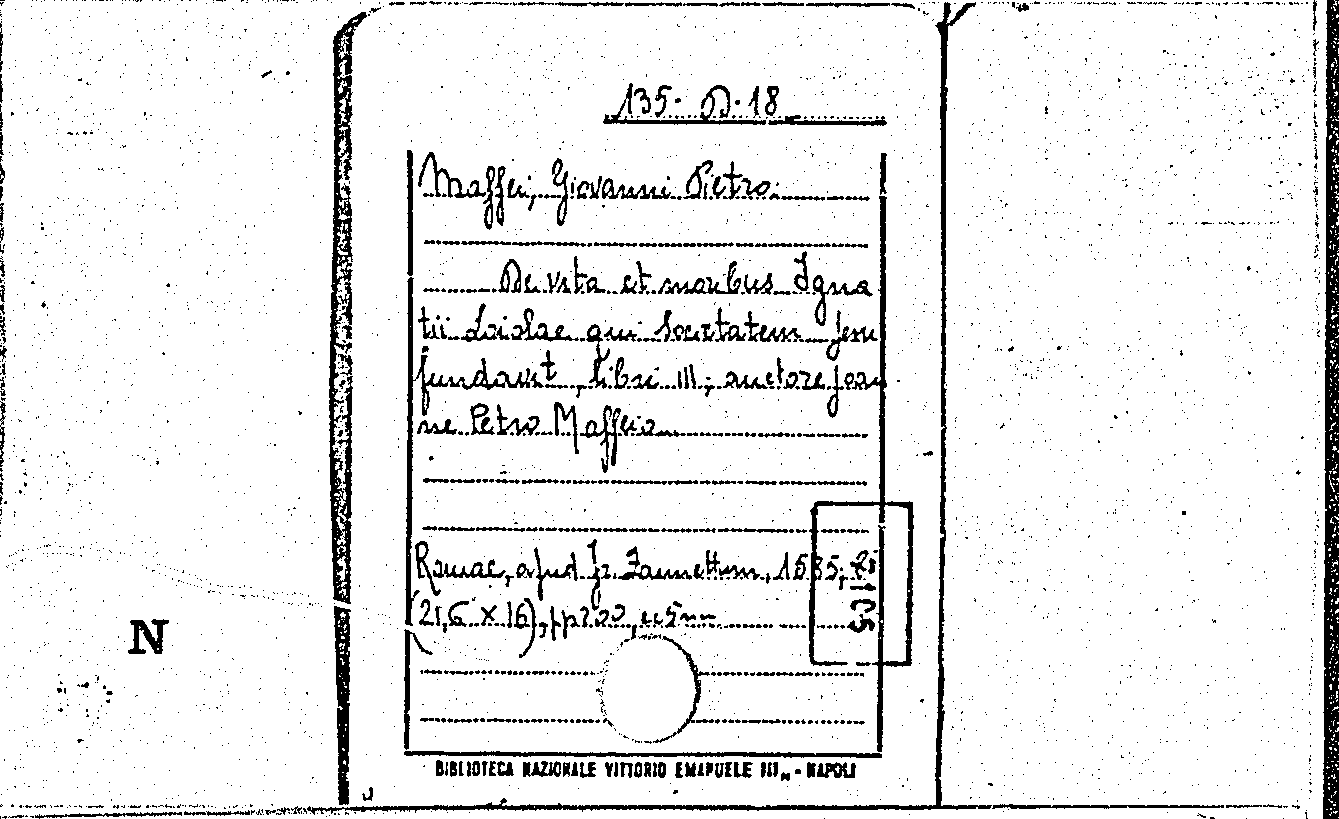 135. D. 18
Maffei, Giovanni Pietro.
De vita et moribus Igna
tii Loiolae qui Societatem Jesu
fundavit, libri III; auctore Joan
ne Petro Maffeio.
Romae, apud Fr. Zannettum, 1585,
(21,6 X 16), pp
N
BIBLIOTECA NAZIONALE VITTORIO EMANUELE III - NAPOLI